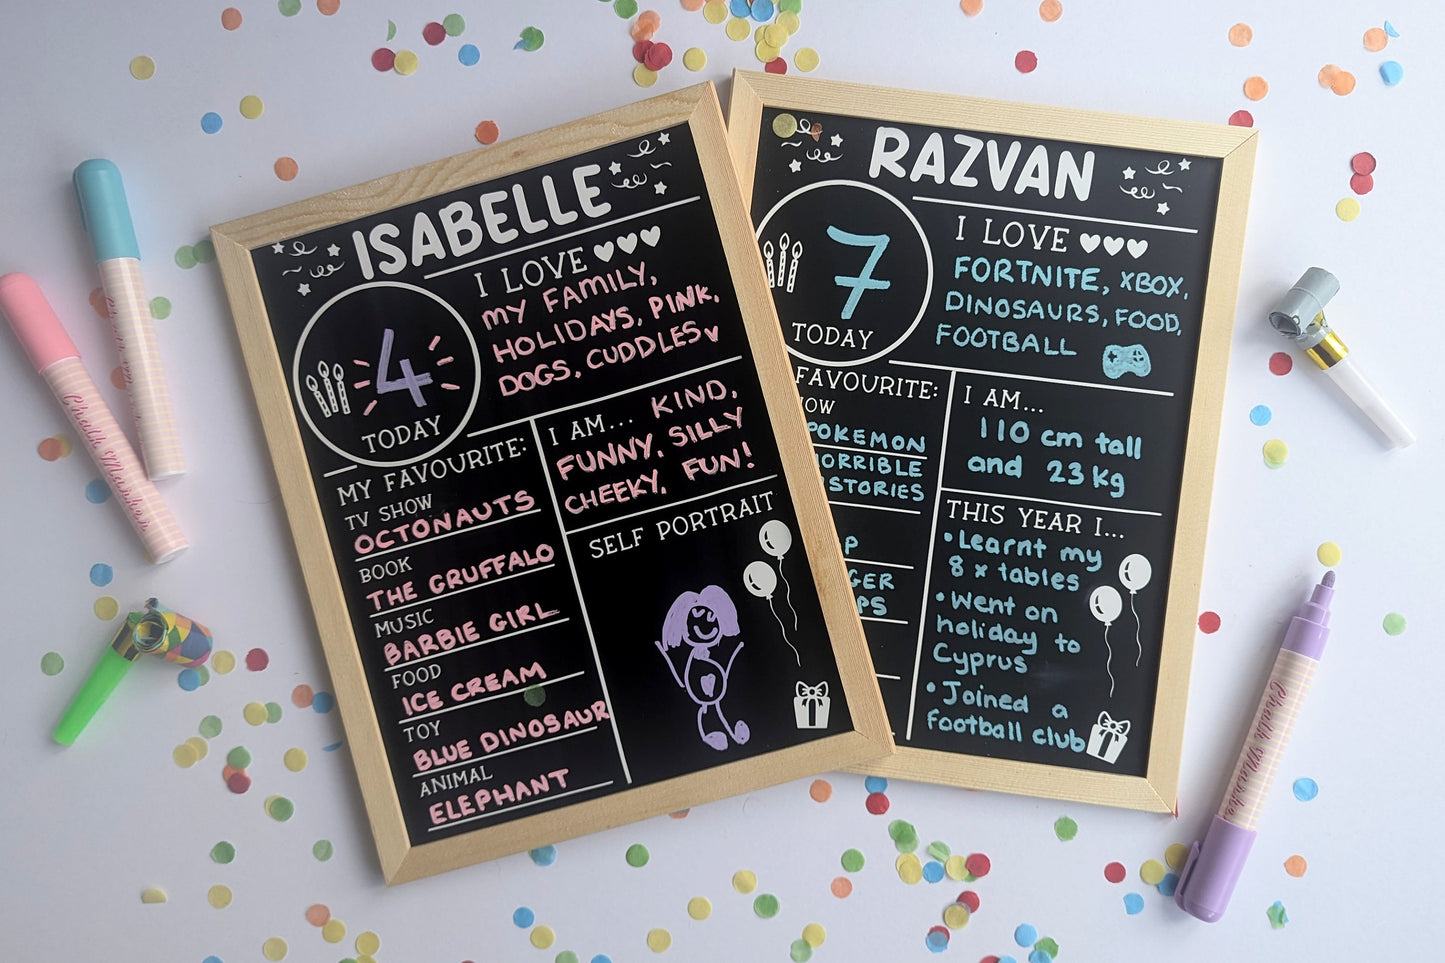 ISABELLE
4
TODAY
I LOVE
MY FAMILY,
HOLIDAYS, PINK,
DOGS, CUDDLES
MY FAVOURITE:
TV SHOW
OCTONAUTS
BOOK
THE GRUFFALO
MUSIC
BARBIE GIRL
FOOD
ICE CREAM
TOY
BLUE DINOSAUR
ANIMAL
ELEPHANT
I AM... KIND,
FUNNY, SILLY
CHEEKY, FUN!
SELF PORTRAIT
RAZVAN
7
TODAY
I LOVE
FORTNITE, XBOX,
DINOSAURS, FOOD,
FOOTBALL
FAVOURITE:
POKEMON
I AM...
110 cm tall
and 23 kg
THIS YEAR I...
• Learnt my
8 x tables
• Went on
holiday to
Cyprus
• Joined a
football club
Chalk Marker
Chalk Marker